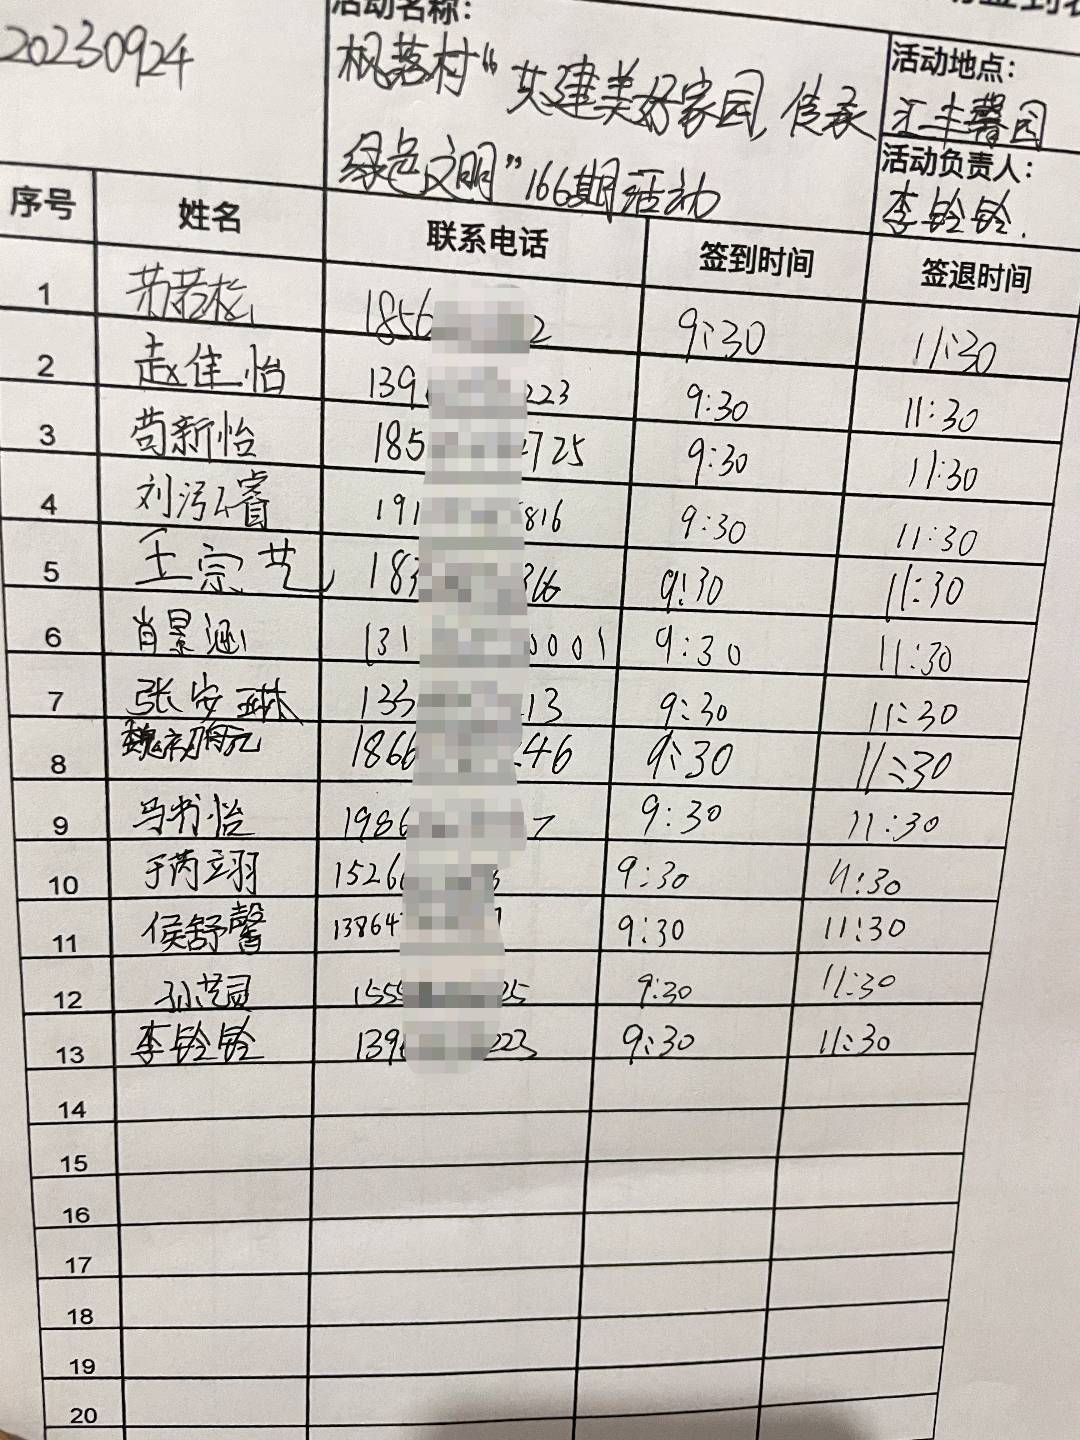 活动名称：
20230924
枫落村“共建美好家园，传承
绿色文明”166期活动
活动地点：
汇丰馨园
活动负责人：
李铃铃.
序号 姓名 联系电话 签到时间 签退时间
1 1856 2 9:30 11:30
2 赵佳怡 139 223 9:30 11:30
3 苟新怡 185 4725 9:30 11:30
4 刘泓睿 191 816 9:30 11:30
5 王宗艺 183 366 9:30 11:30
6 肖景涵 131 0001 9:30 11:30
7 张安琳 133 13 9:30 11:30
8 魏初 1866 246 9:30 11:30
9 马书怡 1986 7 9:30 11:30
10 于芮立羽 1526 9:30 11:30
11 侯舒馨 13864 9:30 11:30
12 孙艺灵 1555 25 9:30 11:30
13 李铃铃 139 223 9:30 11:30
14
15
16
17
18
19
20